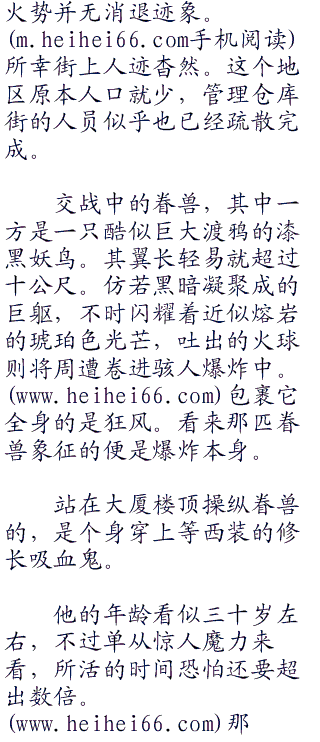 火势并无消退迹象。
(m.heihei66.com手机阅读)
所幸街上人迹杳然。这个地
区原本人口就少，管理仓库
街的人员似乎也已经疏散完
成。
交战中的眷兽，其中一
方是一只酷似巨大渡鸦的漆
黑妖鸟。其翼长轻易就超过
十公尺。仿若黑暗凝聚成的
巨躯，不时闪耀着近似熔岩
的琥珀色光芒，吐出的火球
则将周遭卷进骇人爆炸中。
(www.heihei66.com)包裹它
全身的是狂风。看来那匹眷
兽象征的便是爆炸本身。
站在大厦楼顶操纵眷兽
的，是个身穿上等西装的修
长吸血鬼。
他的年龄看似三十岁左
右，不过单从惊人魔力来
看，所活的时间恐怕还要超
出数倍。
(www.heihei66.com)那